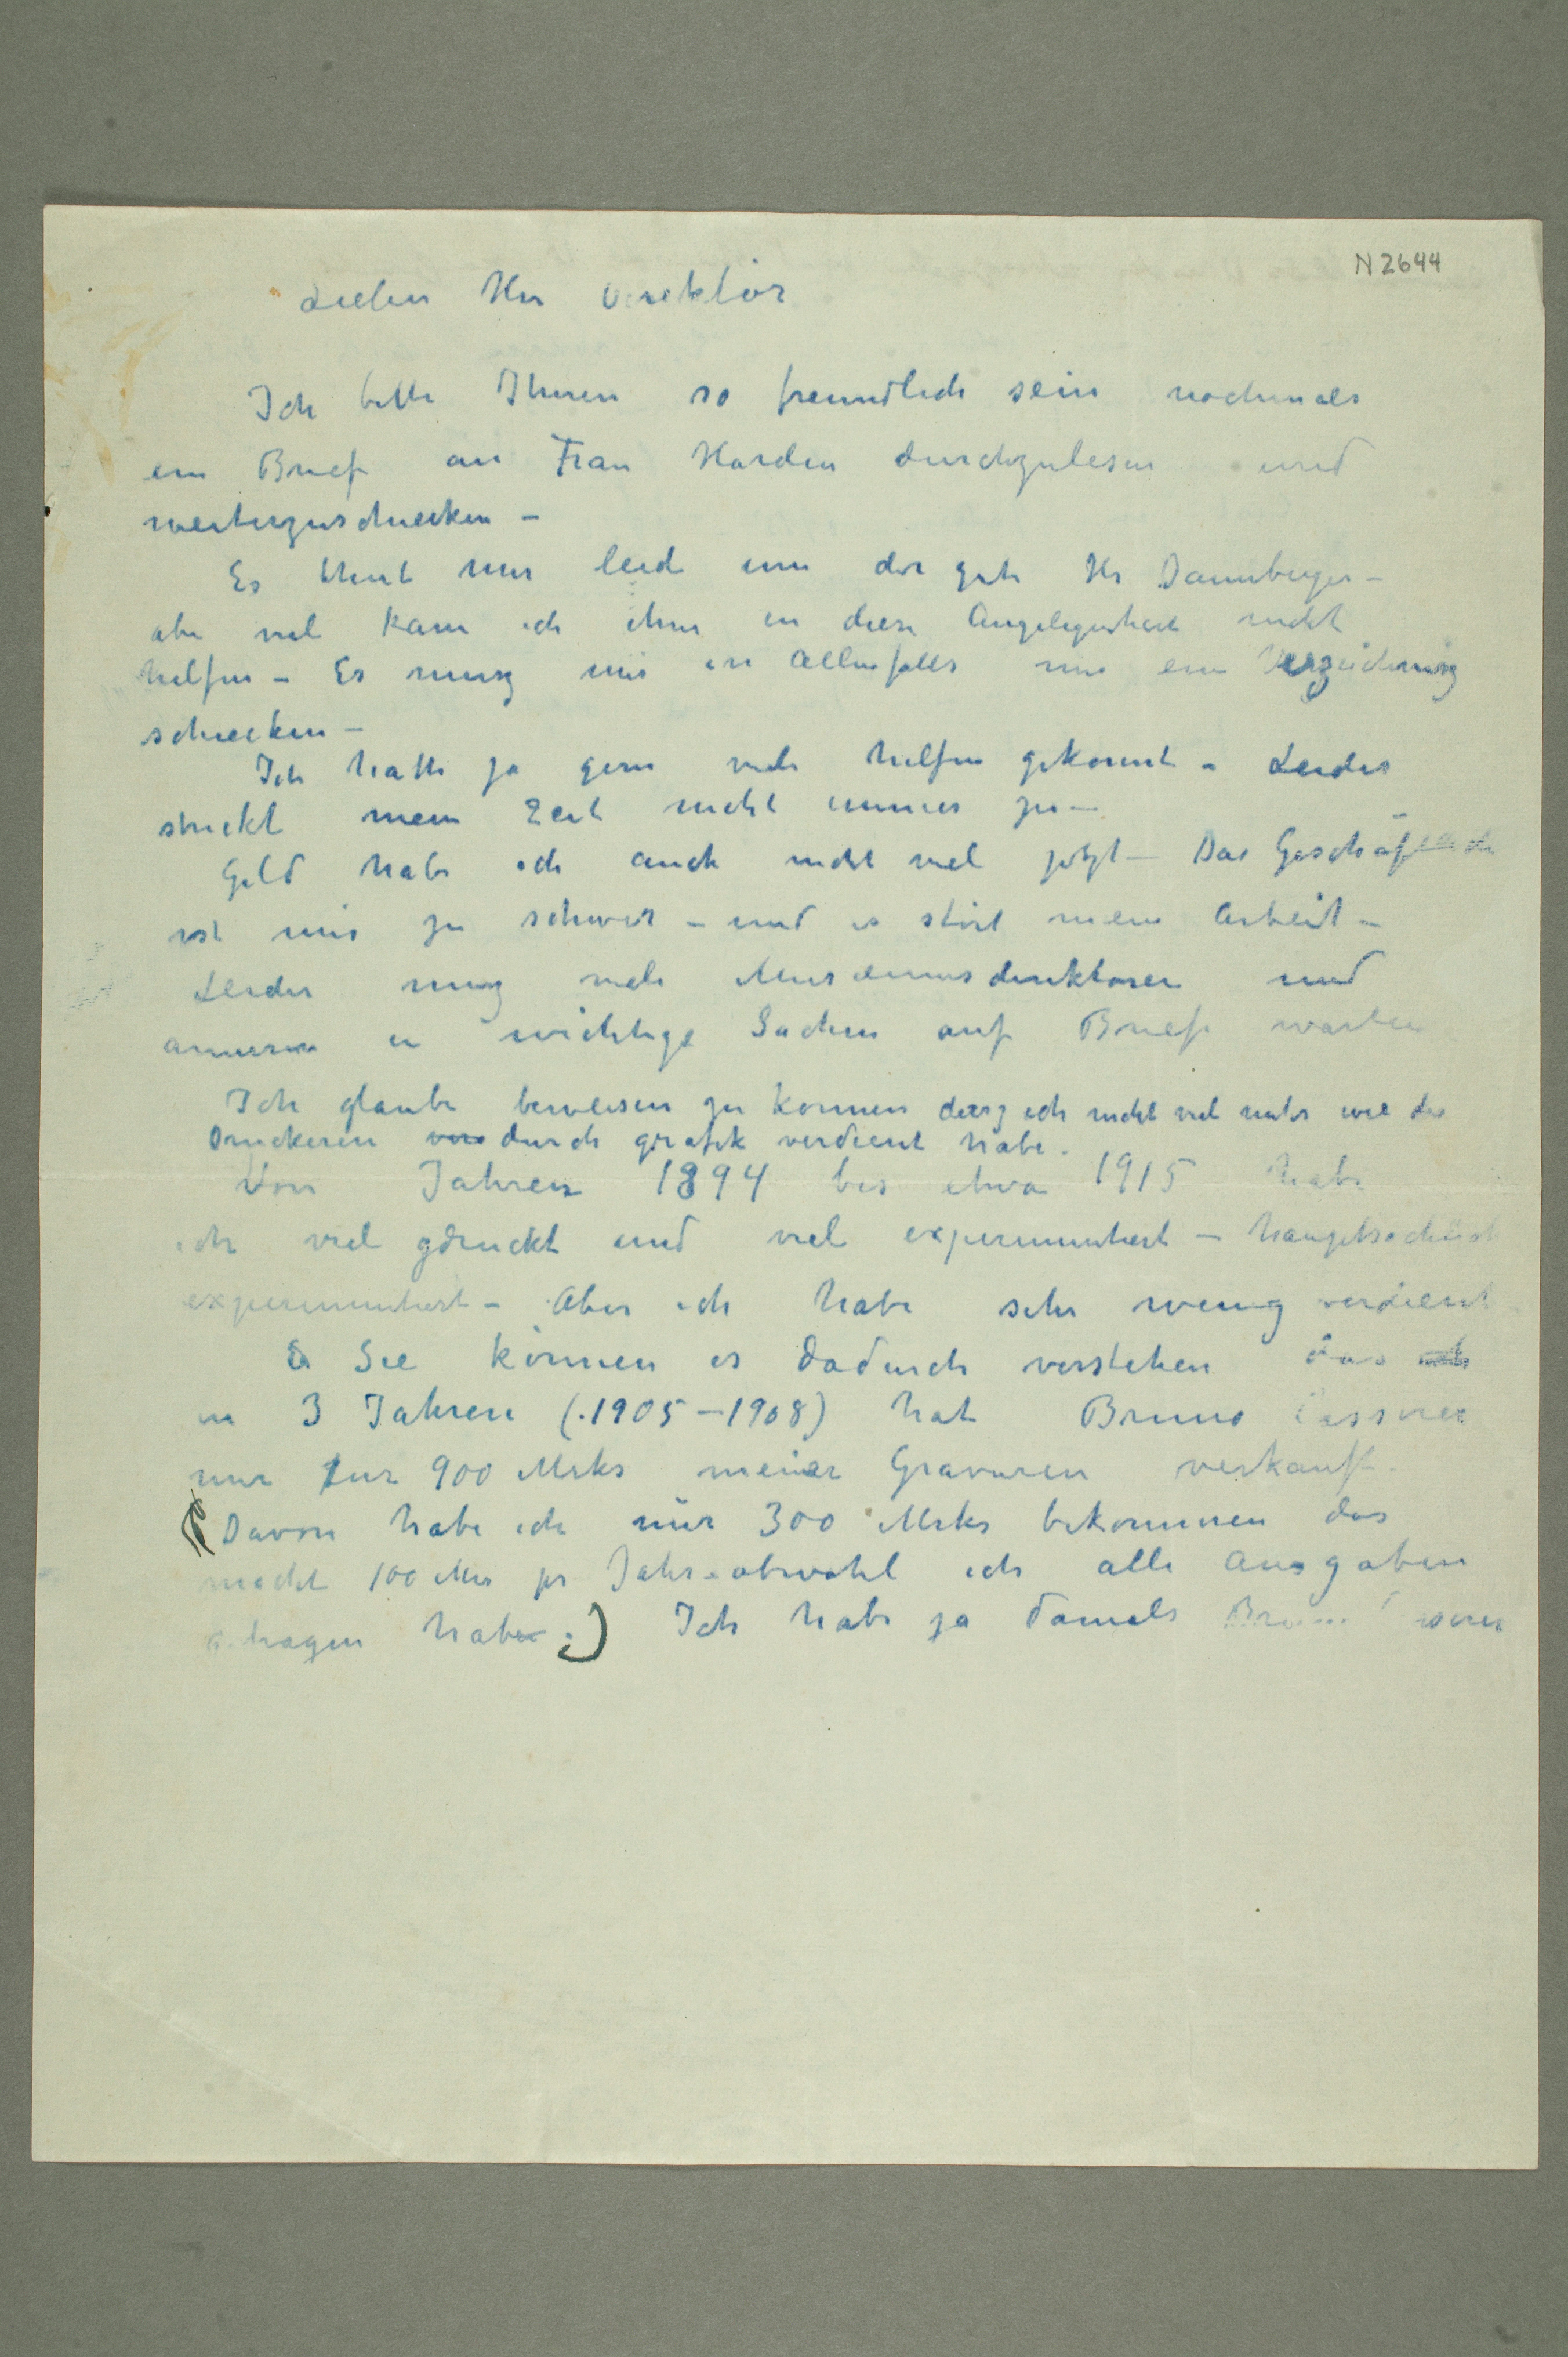 N 2644
Lieber Her Direktör
Ich bitte Ihnen so freundlich sein nochmals
ein Brief an Frau Harden durchzulesen und
weiterzuschicken –
Es thut mir leid um der gute Hr Dannberger –
aber viel kann ich ihm in diese Angelegenheit nicht
helfen – Er musz mir in Allenfalls nur ein Verzeichnisz
schicken –
Ich hatte ja gern mehr helfen gekonnt – Leider
streckt mein Zeit nicht immer zu –
Geld habe ich auch nicht viel jetzt – Das Geschäftliche
ist mir zu schwer – und es stört meine Arbeit –
Leider musz viele Museumsdirektoren und
anneren in wichtige Sachen auf Briefe warten
Ich glaube beweisen zu können dasz ich nicht viel mehr wie die
Druckeren durch grafik verdient habe.
Von Jahren 1894 bis etwa 1915 habe
ich viel gdruckt und viel experimentiert – hauptsächlich
experimentiert – Aber ich habe sehr wenig verdient
Sie können es dadurch verstehen das
in 3 Jahren (1905–1908) hat Bruno Cassirer
nur fur 900 Mrks meiner Gravuren verkauft.
(Davon habe ich nur 300 Mrks bekommen das
macht 100 Mrs pr Jahr – obwohl ich alle Ausgaben
habe.) Ich habe ja damals